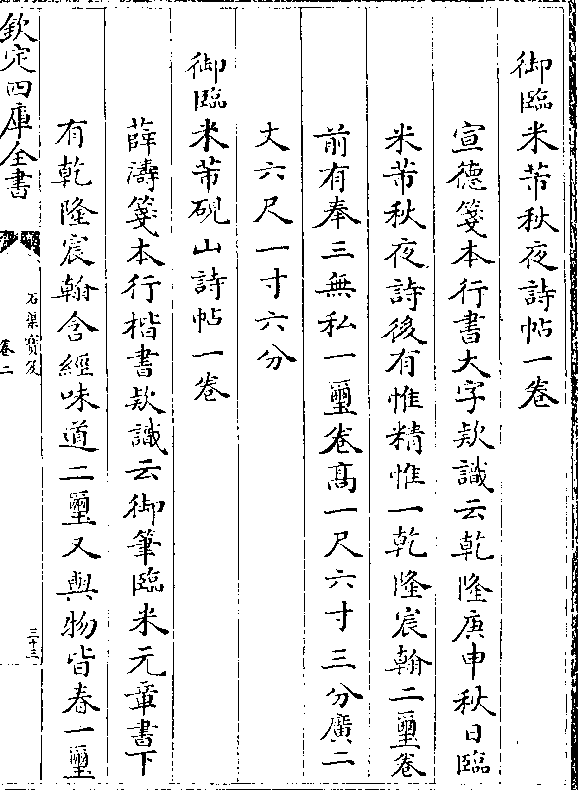 御臨米芾秋夜詩帖一卷
宣德箋本行書大字款識云乾隆庚申秋日臨
米芾秋夜詩後有惟精惟一乾隆宸翰二璽卷
前有奉三無私一璽卷高一尺六寸三分廣二
丈六尺一寸六分
御臨米芾硯山詩帖一卷
薛濤箋本行楷書款識云御筆臨米元章書下
有乾隆宸翰含經味道二璽又與物皆春一璽
欽定四庫全書
石渠寶笈
卷二
三十三